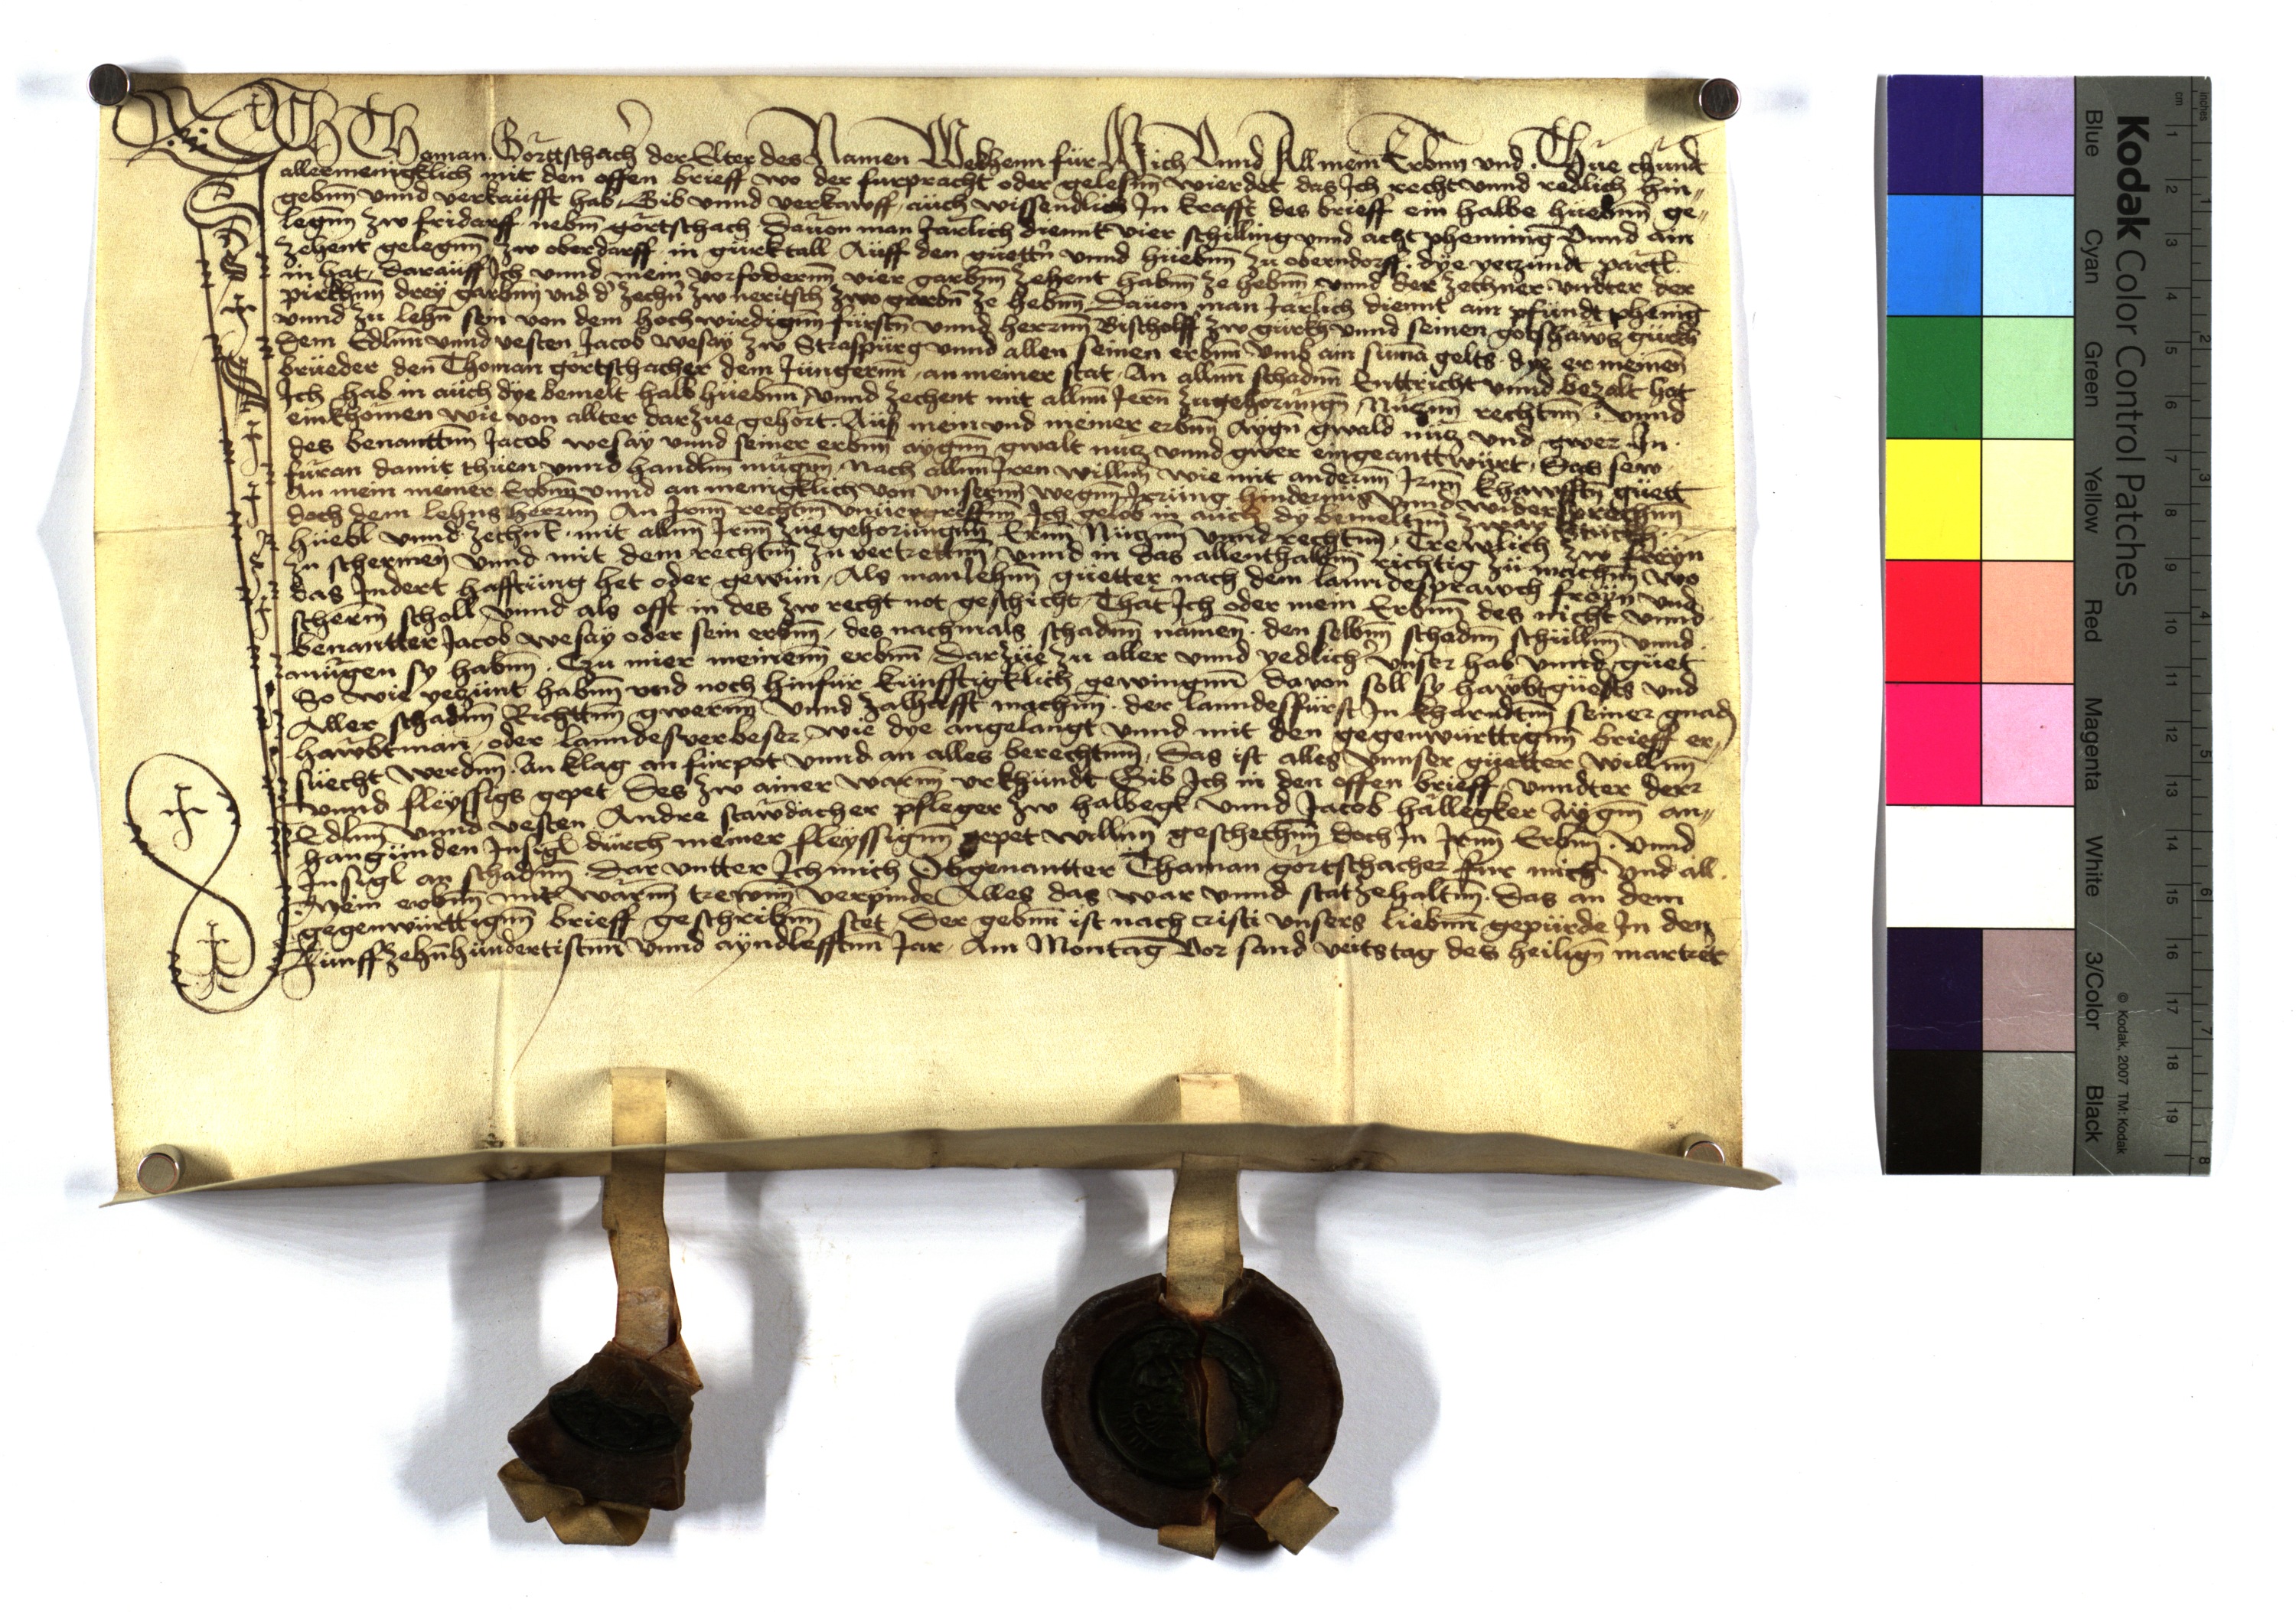 Ich Thoman Görttschach der Elter des Namen Bekhenn für Mich Vnnd All mein Erbnn vnd Thue chundt
allermenigklich mit den offen brieff wo der furpracht oder gelesnn wierdet das Ich recht vnnd redlich hin„
gebnn vnnd verkaufft hab Gib vnnd verkawff auch wissendlich In krafft des brieff ein halbe hüebnn ge„
legnn zw fridarff nebnn gortschach Dauon man Järlich diennt vier schilling vnnd acht phenning Vnnd ain
zehent gelegnn zw oberdarff in gurktall Auff den guettn vnnd hüebnn zu oberndorff dye yetzundt partl
in hat Darauff Ich vnnd mein vorfodernn vier garbnn zehent habnn ze hebnn vnnd der zechner vndter der
pirkhnn drey garbnn vnd d' zechn zw neritsch zwo garbn ze hebnn Dauon man Järlich diennt ain pfundt phenig
vnnd zu lehn sen von dem hochwirdignn fürstn vnnd herrnn Bischolff zw gurkh vnnd seinen gotshaws gurkh
Dem Edlnn vnnd vesten Jacob wesay zw Straspurg vnnd allen seinen erbnn Vmb ain suma gelts dye er meinen
brueder den Thoman görtschacher dem Jungernn an meiner stat An allnn schadnn Enttricht vnnd bezalt hat
Ich hab in auch dye bemelt halb hüebnn vnnd zechent mit allnn Jern zugehorungn Nuznn rechtnn vnnd
einkhomen wie von allter darzue gehört Auß mein vnd meiner erbnn Aygn gwald nutz vnd gwer In
des benanttnn Jacob wesay vnnd seiner erbnn aygnn gwalt nutz vnnd gwer eingeantt wurt Das sew
furan damit thuen vnnd handlnn mugnn Nach allnn Iren willnn wie mit andernn Irnn khawfftn guett
An mein meiner Erbnn vnnd an menigklich von vnsernn wegnn Irrung hindernus Vnnd widersprechnn
doch dem lehns herrnn An Irnn rechtnn vnuergreffnn Ich gelob in auch dy bemeltnn zway stuckh
hüebl vnnd zechnt mit allnn Irnn zuegehorungnn Ernn Nuznn vnnd rechtnn Trewlich zw freyn
zu schermen vnnd mit dem rechtnn zu vertrettnn vnnd in das allenthalbnn richtig zu machnn wo
das Indert hafftung het oder gewün Als man lehnn guetter nach dem lanndesprawch freyn vnd
schermn scholl vnnd als offt in des zw recht not geschicht That Ich oder mein Erbnn des nicht vnnd
benantter Jacob wesay oder sein erbnn des nachmals schadnn namen den selbnn schadnn schullnn vnnd
mugen sy habnn Tzu mier meinenn erbnn darzue zu aller vnnd yedlicher vnser hab vnnd guet
So wie yetzunt habnn vnd noch hinfur kunfftigklich gewingnn davon soll sy hawbtguetts vnd
Aller schadnn Richttnn gwernn vnnd zalhafft machnn der lanndesfürst In kharndtnn seiner gnad
hawbtman oder lanndesverbeser wie dye angelangt vnnd mit den gegenwurttignn brieff er„
suecht werdnn An klag an furpot vnnd an alles berechtnn Das ist alles vnnser guetter willnn
vnnd fleyssigs gepet Des zw ainer warnn vrkhundt Gib Ich in den offen brieff vnndter derr
Edlnn vnnd vesten Andre stawdacher pfleger zw halbegk vnnd Jacob hallegker Aygnn an„
hangunden Insigl durch meiner fleyssignn gepet willnn geschechnn doch In Irnn Erbnn vnnd
Insigl an schadnn Dar vntter Ich mich Obgenantter Thaman gortschacher für mich vnd all
Mein erbnn mit warnn trewnn verpinde Alles das war vnnd stat zehaltnn Das an dem
gegenwurttignn brieff geschribnn stet Der gebnn ist nach cristi vnsers liebnn gepurde In den
Funffzehnhundertistnn vnnd ayndlefftnn Jar Am Montag Vor sand veitstag des heilign martrer
Kodak Color Control Patches
Blue Cyan Green Yellow Red Magenta White 3/Color Black
© Kodak, 2007 TM: Kodak
cm 1 2 3 4 5 6 7 8 9 10 11 12 13 14 15 16 17 18 19
inches 1 2 3 4 5 6 7 8